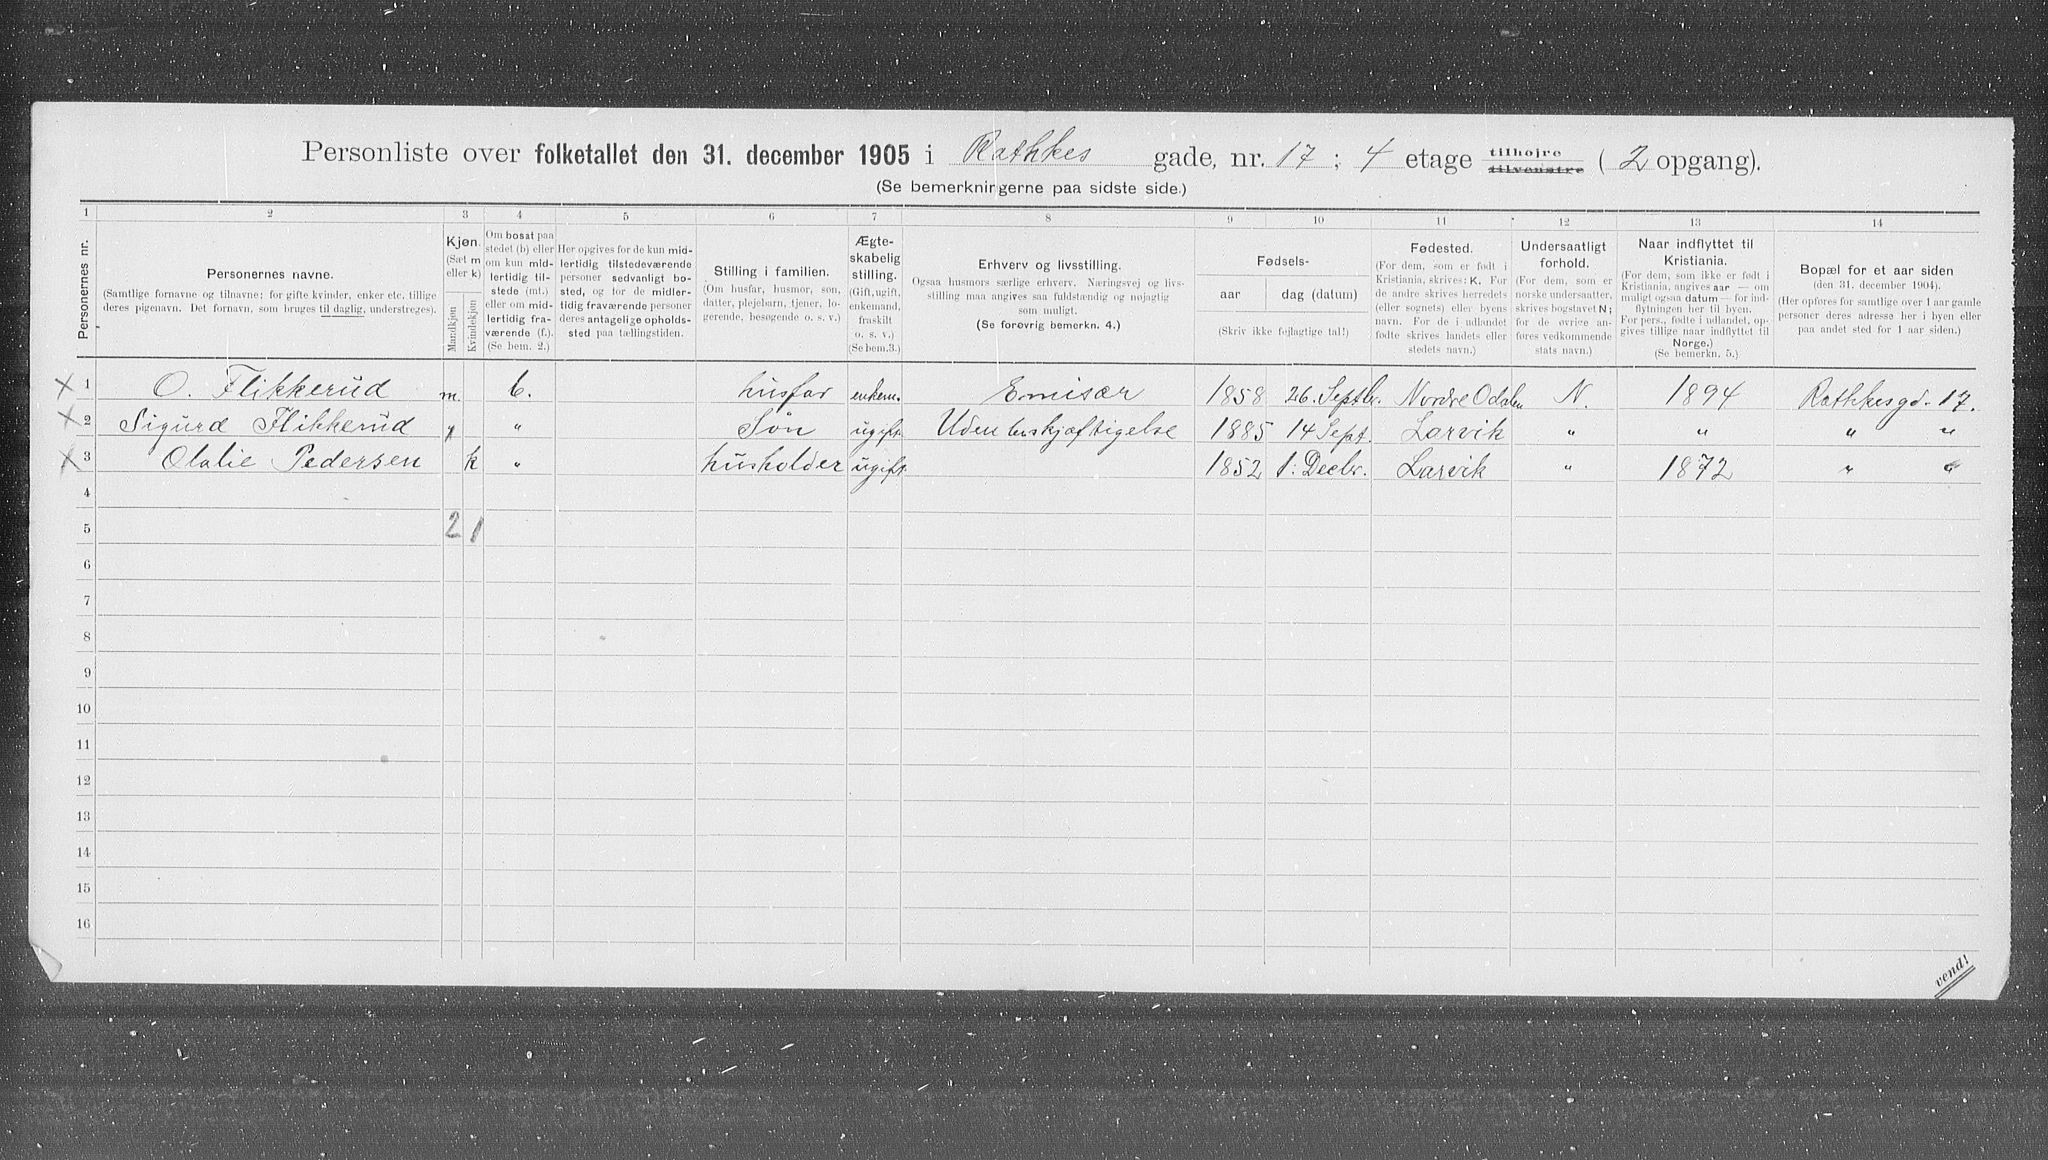 Personliste over folketallet den 31. december 1905 i Rathkes gade, nr. 17 ; 4 etage tilhøjre tilvenstre ( 2 opgang).
(Se bemerkningerne paa sidste side.)
1 2 3 4 5 6 7 8 9 10 11 12 13 14
Personernes nr.
Personernes navne.
(Samtlige fornavne og tilnavne; for gifte kvinder, enker etc. tillige
deres pigenavn. Det fornavn, som bruges til daglig, understreges).
Kjøn.
(Sæt m
eller k)
Mandkjøn
Kvindekjøn
Om bosat paa
stedet (b) eller
om kun mid-
lertidig til-
stede (mt.)
eller om mid-
lertidig fra-
værende (f.).
(Se bem. 2.)
Her opgives for de kun mid-
lertidig tilstedeværende
personer sedvanligt bo-
sted, og for de midler-
tidig fraværende personer
deres antagelige opholds-
sted paa tællingstiden.
Stilling i familien.
(Om husfar, husmor, søn,
datter, plejebarn, tjener, lo-
gerende, besøgende o. s. v.)
Ægte-
skabelig
stilling.
(Gift, ugift,
enkemand,
fraskilt
o. s. v.)
(Se bem.3.)
Erhverv og livsstilling.
Ogsaa husmors særlige erhverv. Næringsvej og livs-
stilling maa angives saa fuldstændig og nøjagtig
som muligt.
(Se forøvrig bemerkn. 4.)
Fødsels-
aar
dag (datum)
(Skriv ikke fejlagtige tal!)
Fødested.
(For dem, som er født i
Kristiania, skrives: K. For
de andre skrives herredets
(eller sognets) eller byens
navn. For de i udlandet
fødte skrives landets eller
stedets navn.)
Undersaatligt
forhold.
(For dem, som er
norske undersaatter,
skrives bogstavet N;
for de øvrige an-
føres vedkommende
stats navn.)
Naar indflyttet til
Kristiania.
(For dem, som ikke er født i
Kristiania, angives aar — om
muligt ogsaa datum — for ind-
flytningen her til byen.
For pers., fødte i udlandet, op-
gives tillige naar indflyttet til
Norge.)
(Se bemerkn. 5.)
Bopæl for et aar siden
(den 31. december 1904).
(Her opføres for samtlige over 1 aar gamle
personer deres adresse her i byen eller
paa andet sted for 1 aar siden.)
X 1 O. Flikkerud m. b. husfar enkem. Emisær 1858 26. Septbr. Nordre Odalen N. 1894 Rathkesgd. 17.
X 2 Sigurd Flikkerud " Søn ugift Uden beskjæftigelse 1885 14 Sept. Larvik " " " "
X 3 Olalie Pedersen k " husholder ugift 1852 1. Decbr. Larvik " 1872 " "
4
5 2 1
6
7
8
9
10
11
12
13
14
15
16
vend!